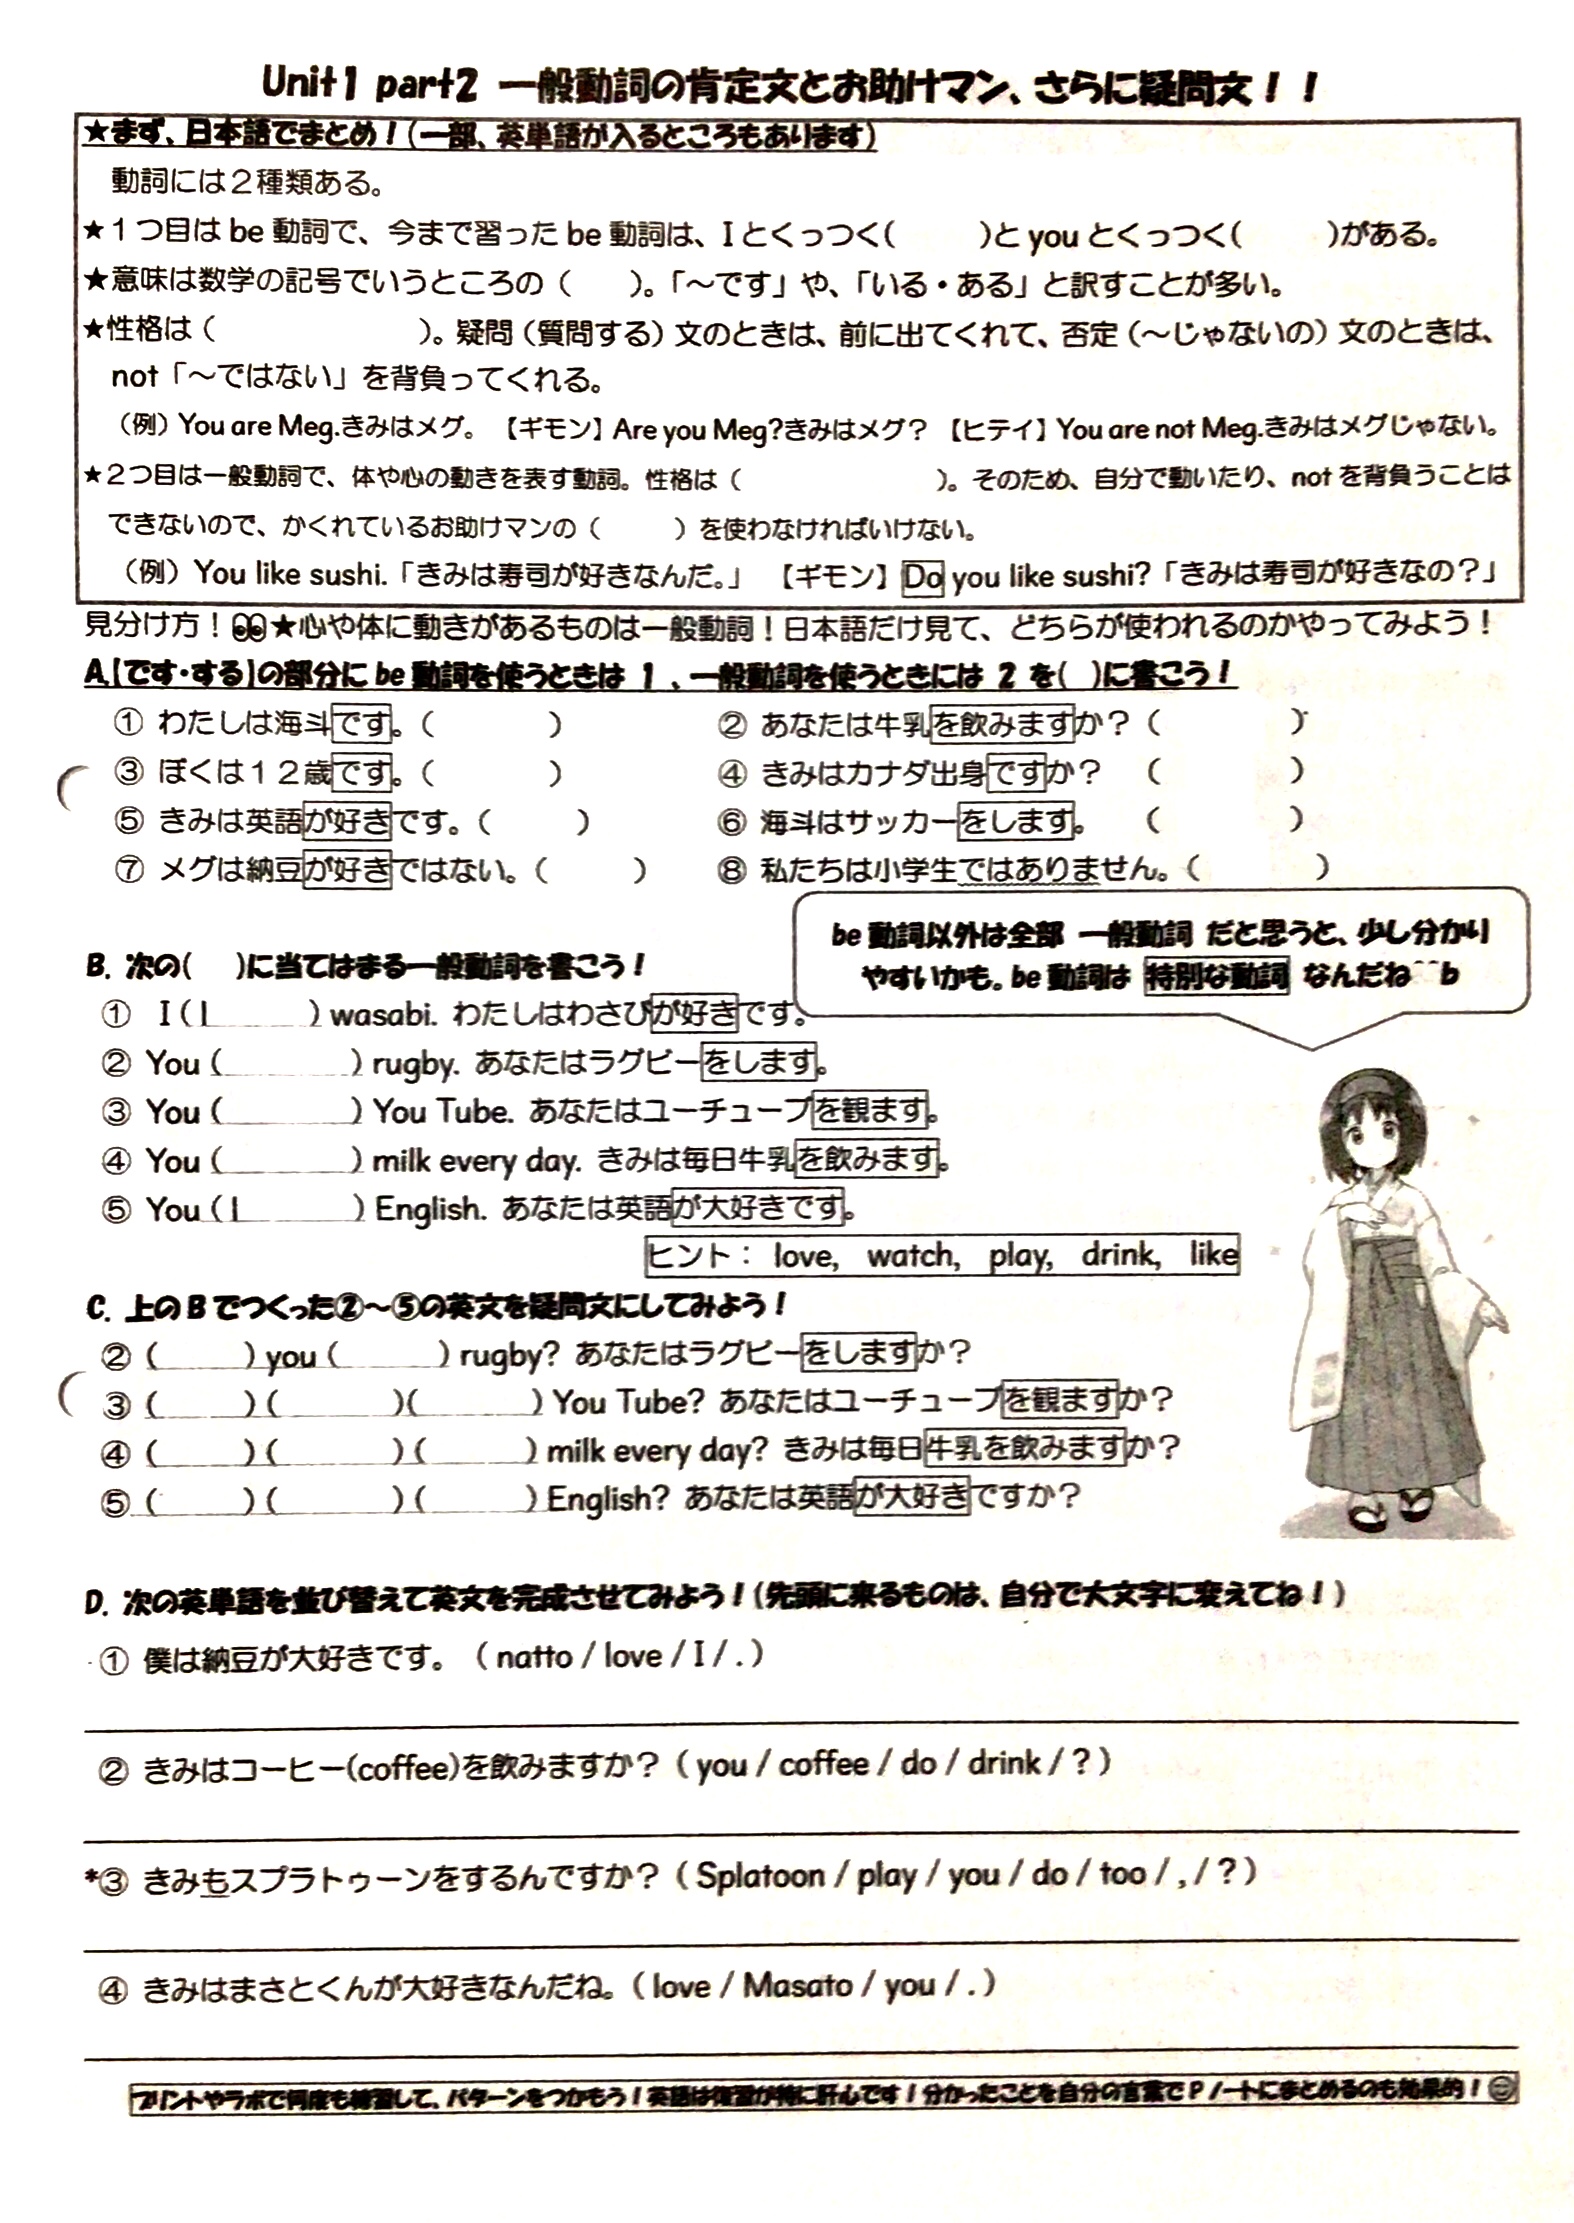 Unit1 part2 一般動詞の肯定文とお助けマン、さらに疑問文！！
★まず、日本語でまとめ！(一部、英単語が入るところもあります)
動詞には２種類ある。
★１つ目は be 動詞で、今まで習った be 動詞は、I とくっつく(　　　)と you とくっつく(　　　)がある。
★意味は数学の記号でいうところの（　　）。「～です」や、「いる・ある」と訳すことが多い。
★性格は（　　　　　　　）。疑問（質問する）文のときは、前に出てくれて、否定（～じゃないの）文のときは、
not「～ではない」を背負ってくれる。
（例）You are Meg.きみはメグ。【ギモン】Are you Meg?きみはメグ？【ヒテイ】You are not Meg.きみはメグじゃない。
★２つ目は一般動詞で、体や心の動きを表す動詞。性格は（　　　　　　　）。そのため、自分で動いたり、not を背負うことは
できないので、かくれているお助けマンの（　　　）を使わなければいけない。
（例）You like sushi.「きみは寿司が好きなんだ。」【ギモン】Do you like sushi?「きみは寿司が好きなの？」
見分け方！★心や体に動きがあるものは一般動詞！日本語だけ見て、どちらが使われるのかやってみよう！
A.【です・する】の部分に be 動詞を使うときは 1 、一般動詞を使うときには 2 を(　)に書こう！
① わたしは海斗です。（　　　　）　② あなたは牛乳を飲みますか？（　　　　）
③ ぼくは１２歳です。（　　　　）　④ きみはカナダ出身ですか？（　　　　）
⑤ きみは英語が好きです。（　　　）　⑥ 海斗はサッカーをします。（　　　　）
⑦ メグは納豆が好きではない。（　　　）　⑧ 私たちは小学生ではありません。（　　　　）
be 動詞以外は全部 一般動詞 だと思うと、少し分かり
やすいかも。be 動詞は 特別な動詞 なんだね^^b
B. 次の(　)に当てはまる一般動詞を書こう！
① I ( l______ ) wasabi. わたしはわさびが好きです。
② You (________) rugby. あなたはラグビーをします。
③ You (________) You Tube. あなたはユーチューブを観ます。
④ You (________) milk every day. きみは毎日牛乳を飲みます。
⑤ You ( l______ ) English. あなたは英語が大好きです。
ヒント： love, watch, play, drink, like
C. 上の B でつくった②～⑤の英文を疑問文にしてみよう！
② (______) you (______) rugby? あなたはラグビーをしますか？
③ (______) (______)(______) You Tube? あなたはユーチューブを観ますか？
④ (______) (______) (______) milk every day? きみは毎日牛乳を飲みますか？
⑤ (______) (______) (______) English? あなたは英語が大好きですか？
D. 次の英単語を並び替えて英文を完成させてみよう！(先頭に来るものは、自分で大文字に変えてね！)
① 僕は納豆が大好きです。（ natto / love / I / . ）
② きみはコーヒー(coffee)を飲みますか？（ you / coffee / do / drink / ? ）
*③ きみもスプラトゥーンをするんですか？（ Splatoon / play / you / do / too / , / ? ）
④ きみはまさとくんが大好きなんだね。（ love / Masato / you / . ）
プリントやラボで何度も練習して、パターンをつかもう！英語は復習が特に肝心です！分かったことを自分の言葉で P ノートにまとめるのも効果的！☺